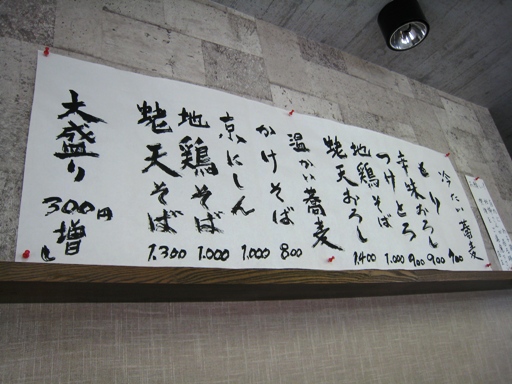 冷たい蕎麦
もり 700
辛味おろし 900
つけとろ 900
地鶏そば 1.000
蛯天おろし 1.400
温かい蕎麦
かけそば 800
京にしん 1.000
地鶏そば 1.000
蛯天そば 1.300
大盛り 300円増し